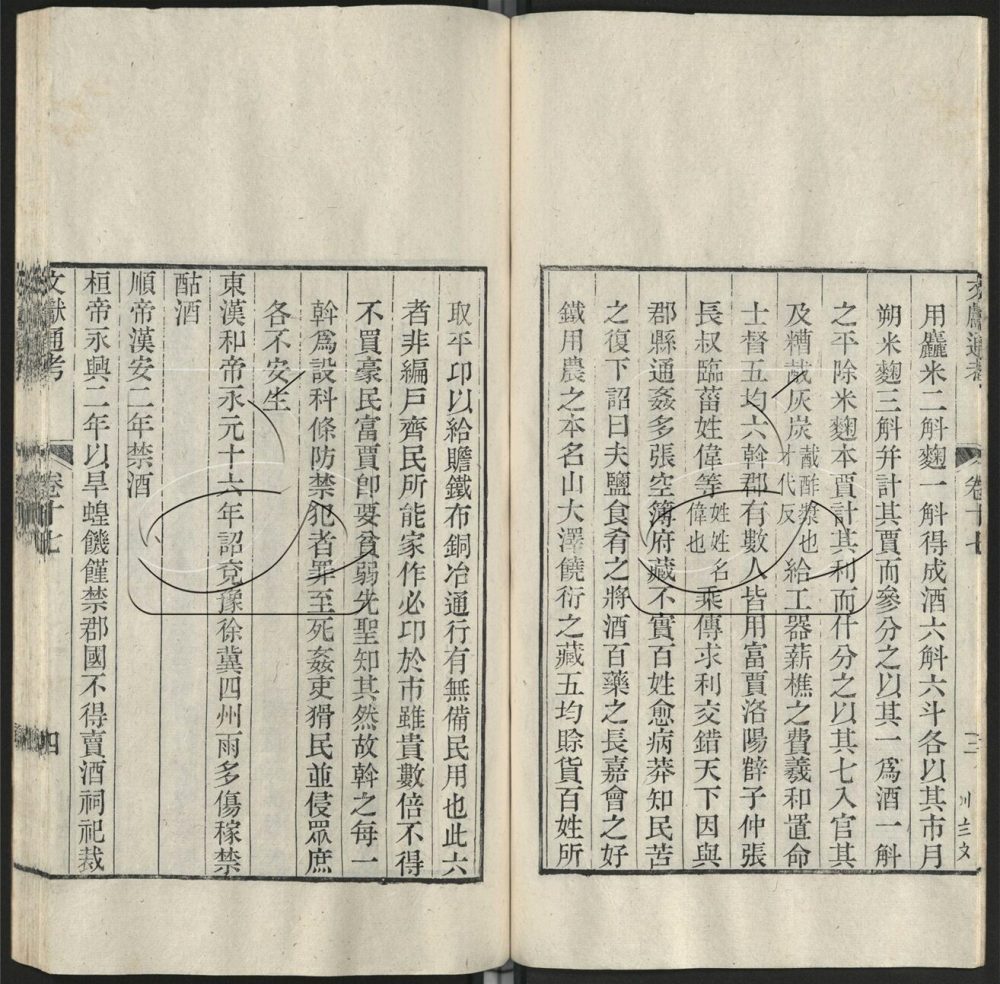 文獻通考 卷十七 三
用麤米二斛麴一斛得成酒六斛六斗各以其市月
朔米麴三斛并計其賈而參分之以其一爲酒一斛
之平除米麴本賈計其利而什分之以其七入官其
及糟酨灰炭酨酢漿也才代反給工器薪樵之費羲和置命
士督五均六斡郡有數人皆用富賈洛陽薛子仲張
長叔臨菑姓偉等姓姓名偉也乘傳求利交錯天下因與
郡縣通姦多張空簿府藏不實百姓愈病莽知民苦
之復下詔曰夫鹽食肴之將酒百藥之長嘉會之好
鐵用農之本名山大澤饒衍之藏五均賒貨百姓所
取平卬以給贍鐵布銅冶通行有無備民用也此六
者非編戶齊民所能家作必卬於市雖貴數倍不得
不買豪民富賈卽要貧弱先聖知其然故斡之每一
斡爲設科條防禁犯者罪至死姦吏猾民並侵眾庶
各不安生
東漢和帝永元十六年詔兗豫徐冀四州雨多傷稼禁
酤酒
順帝漢安二年禁酒
桓帝永興二年以旱蝗饑饉禁郡國不得賣酒祠祀裁
文獻通考 卷十七 四